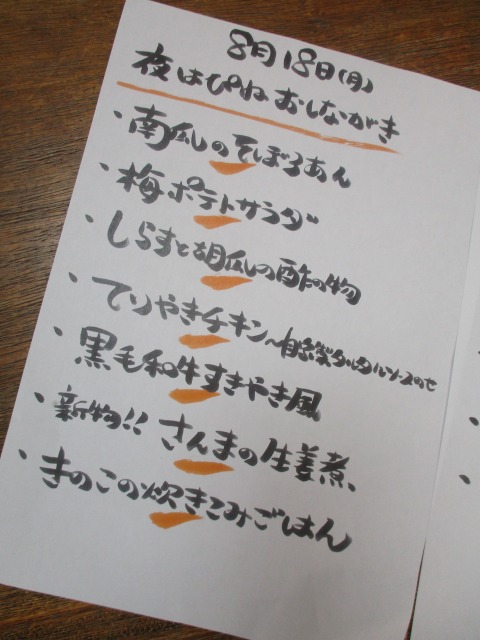 8月18日(月)
夜はぴね おしながき
・南瓜のそぼろあん
・梅ポテトサラダ
・しらすと胡瓜の酢の物
・てりやきチキン〜自家製タルタルソースのせ
・黒毛和牛すきやき風
・新物!! さんまの生姜煮、
・きのこの炊きこみごはん